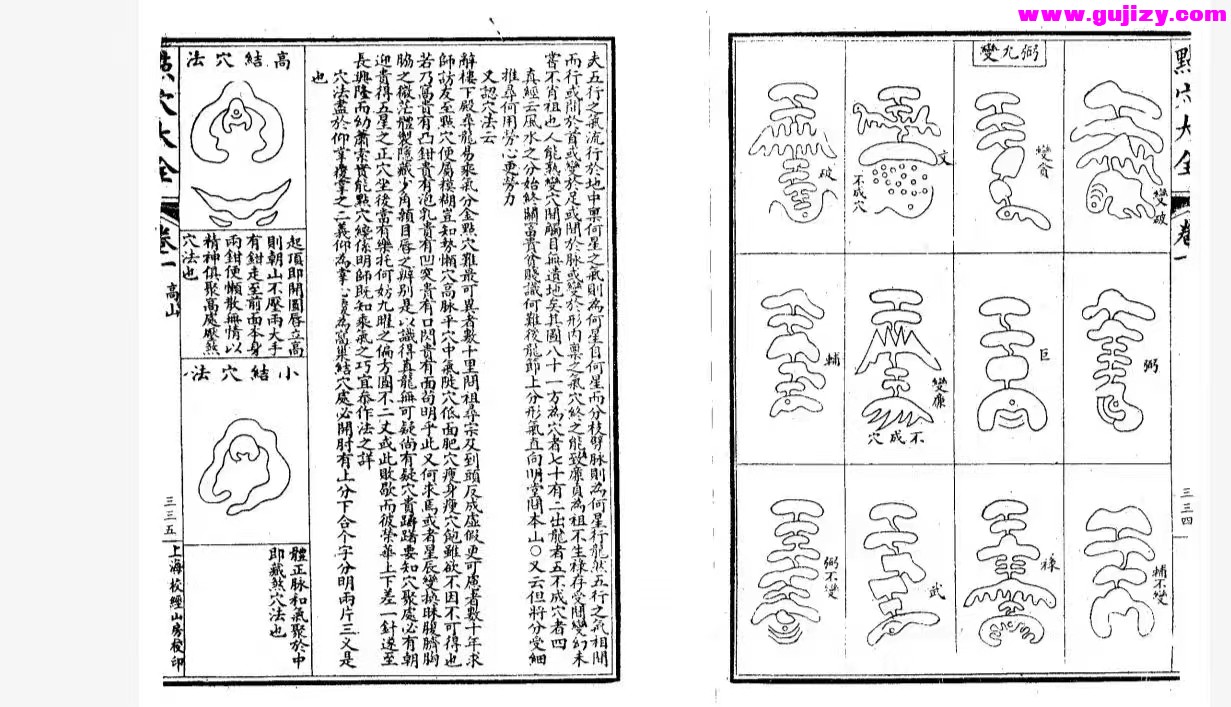 www.gujizy.com
點穴大全
卷一
三三四
弼九變
變破
變貪
文
不成穴
破
弼
巨
變廉
不成穴
輔
輔不變
祿
武
弼不變
夫五行之氣流行於地中稟何星之氣則為何星自何星而分枝劈脉則為何星行龍然五行之氣相間
而行或間於首或變於足或間於脉或變於形內稟之氣穴終之能致廉貞為祖不生祿存受間變幻未
嘗不肖祖也人能熟變穴間觸目無遺地矣其圖八十一方為穴者七十有二出龍者五不成穴者四
真經云風水之分始終關富貴貧賤識何難後龍節上分形氣直向明堂間本山○又云但將分受細
推尋何用勞心更勞力
又認穴法云
辭樓下殿尋龍易乘氣分金點穴難最可異者數十里間祖尋宗及到頭反成虛假更可慮者數十年求
師訪友至點穴便屬模糊豈知勢懶穴高脉平穴中氣陡穴低面肥穴瘦身瘦穴飽雖欲不因不可得也
若乃窩貴有凸鉗貴有泡乳貴有凹突貴有口閃貴有面茍明乎此又何求焉或者星辰變換昧腹臍胸
脇之微茫體製隱藏少角顙目唇之辨別是以識得真龍無可疑尚有疑穴貴躊躇要知穴聚處必有朝
迎貴得五星之正穴坐後當有樂托何妨九曜之偏方圓不二丈或此敗歇而彼榮華上下差一針遂至
長興隆而幼蕭索實能點穴總係明師既知乘氣之巧宜泰作法之詳
穴法盡於仰掌覆掌之二義仰為窩巢結穴處必開肘有上分下合个字分明兩片三叉是
也
高結穴法
起頂即開圓唇立高
則朝山不壓兩大手
有鉗走至前面本身
兩鉗便懶散無情以
精神俱聚高處壓煞
穴法也
小結穴法
體正脉和氣聚於中
即藏煞穴法也
點穴大全
卷一
高山
三三五
上海校經山房校印